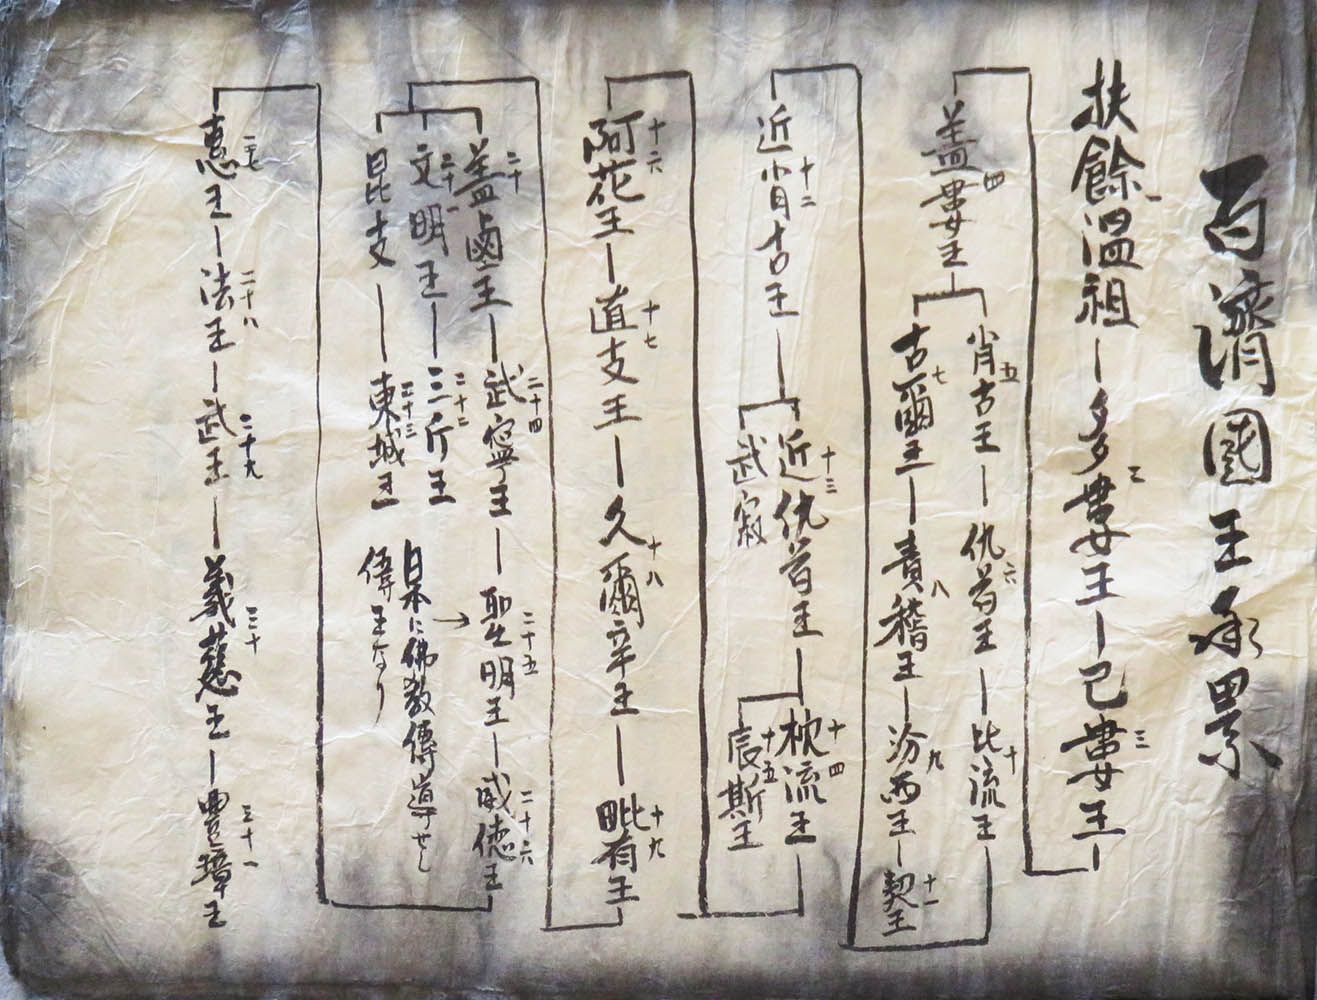 百濟國王系累
扶餘温祖 一
多婁王 二
己婁王 三
蓋婁王 四
肖古王 五
仇首王 六
比流王 十
古爾王 七
責稽王 八
汾西王 九
契王 十一
近肖古王 十二
近仇首王 十三
枕流王 十四
武寂
辰斯王 十五
阿花王 十六
直支王 十七
久爾辛王 十八
毗有王 十九
蓋鹵王 二十
武寧王 二十四
聖明王 二十五
威徳王 二十六
文明王 二十一
三斤王 二十二
昆支
東城王 二十三
→
日本に佛教傳導せし
傳王なり
惠王 二七
法王 二十八
武王 二十九
義慈王 三十
豊璋王 三十一